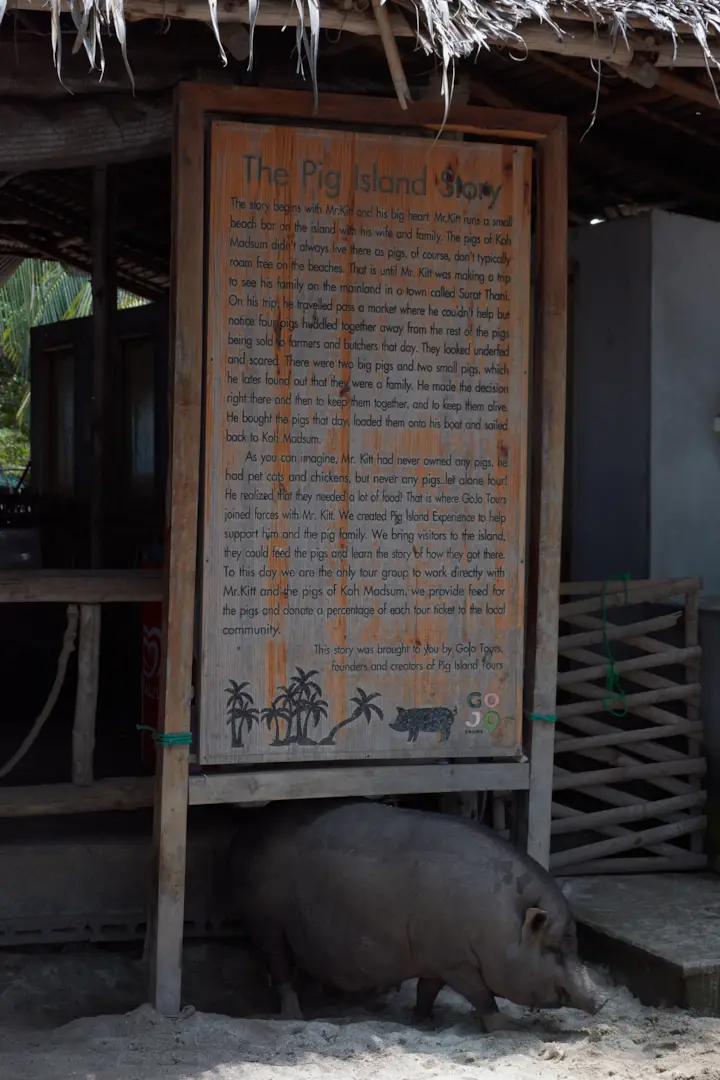 The Pig Island Story
The story begins with Mr.Kitt and his big heart. Mr.Kitt runs a small
beach bar on the island with his wife and family. The pigs of Koh
Madsum didn't always live there as pigs, of course, don't typically
roam free on the beaches. That is until Mr. Kitt was making a trip
to see his family on the mainland in a town called Surat Thani.
On his trip, he travelled pass a market where he couldn't help but
notice four pigs huddled together away from the rest of the pigs
being sold to farmers and butchers that day. They looked underfed
and scared. There were two big pigs and two small pigs, which
he later found out that they were a family. He made the decision
right there and then to keep them together, and to keep them alive.
He bought the pigs that day, loaded them onto his boat and sailed
back to Koh Madsum.
As you can imagine, Mr. Kitt had never owned any pigs, he
had pet cats and chickens, but never any pigs..let alone four!
He realized that they needed a lot of food! That is where GoJo Tours
joined forces with Mr. Kitt. We created Pig Island Experience to help
support him and the pig family. We bring visitors to the island,
they could feed the pigs and learn the story of how they got there.
To this day we are the only tour group to work directly with
Mr.Kitt and the pigs of Koh Madsum, we provide feed for
the pigs and donate a percentage of each tour ticket to the local
community.
This story was brought to you by GoJo Tours,
founders and creators of Pig Island Tours
GO
JO
TOURS